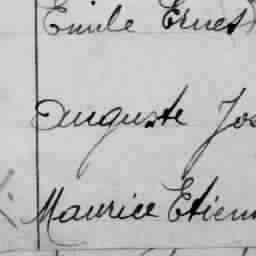 Emile Ernest
Auguste Jos
Maurice Etienn